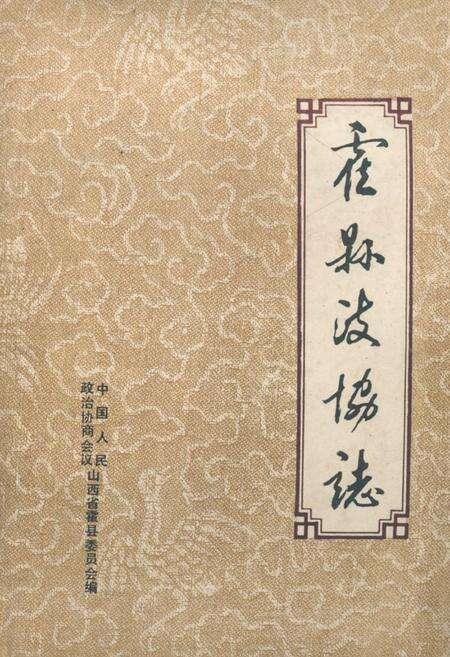 霍縣政協誌
中国人民
政治协商会议
山西省霍县委员会编